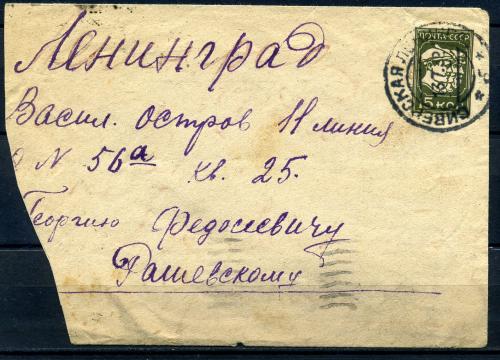 Ленинград
ПОЧТА СССР
15 КОП
СИВЕРСКАЯ
Васил. остров 11 линия
д N 56а кв. 25.
Георгию Федосеевичу
Рашевскому